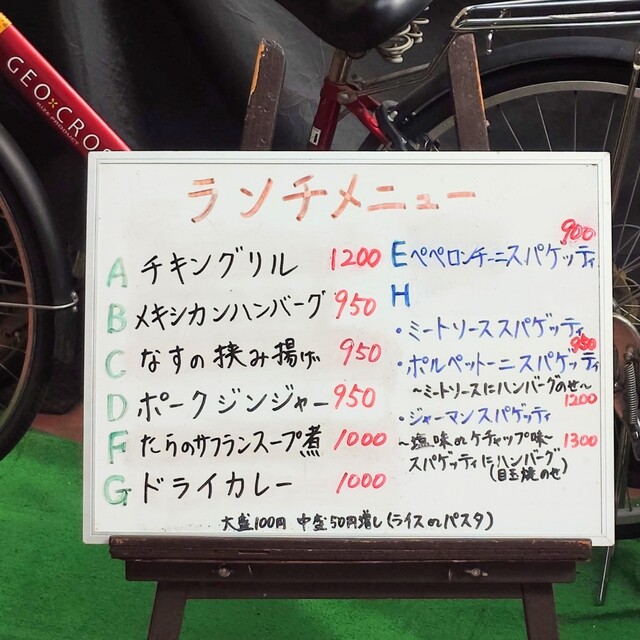 GEO CROSS
ランチメニュー
A チキングリル 1200
B メキシカンハンバーグ 950
C なすの挟み揚げ 950
D ポークジンジャー 950
F たらのサフランスープ煮 1000
G ドライカレー 1000
900
E ペペロンチーニスパゲッティ
H
・ミートソーススパゲッティ
950
・ポルペットーニスパゲッティ
～ミートソースにハンバーグのせ～
1200
・ジャーマンスパゲッティ
～塩味orケチャップ味～ 1300
スパゲッティにハンバーグ
(目玉焼のせ)
大盛100円 中盛50円増し(ライスorパスタ)